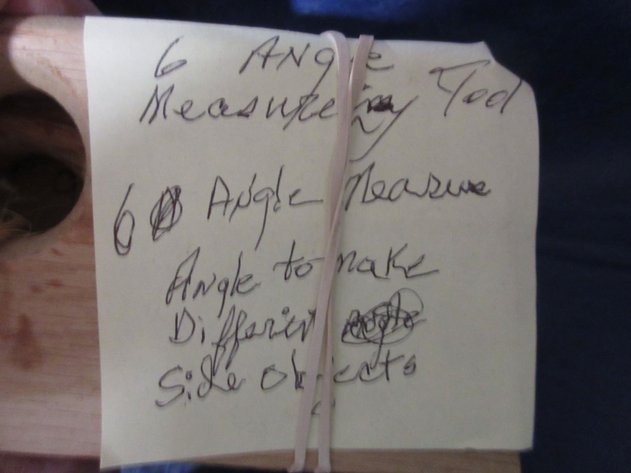 6 Angle
Measureing Tool
6 Angle Measure
Angle to make
Different
Side Objects